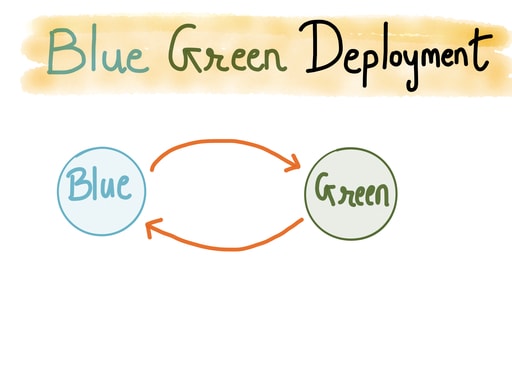 Blue Green Deployment
Blue
Green